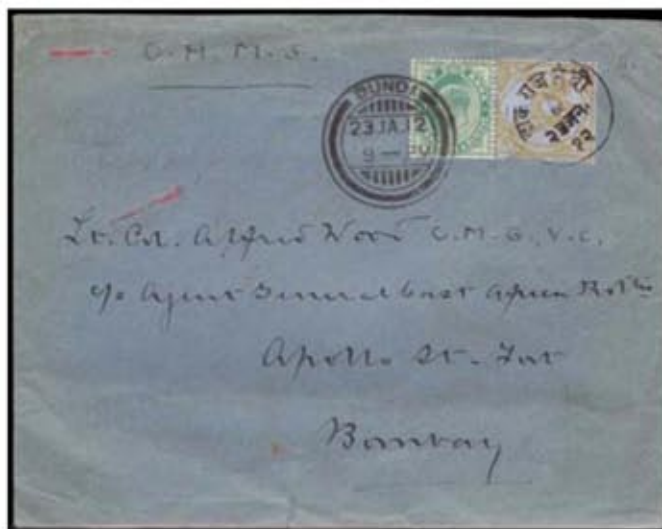 O.H.M.S.
BUNDI
23 JA 12
9 —
Lt. Col. Alfred Wood C.M.G., V.C.
c/o Agent General East African
Apollo St. Fort
Bombay